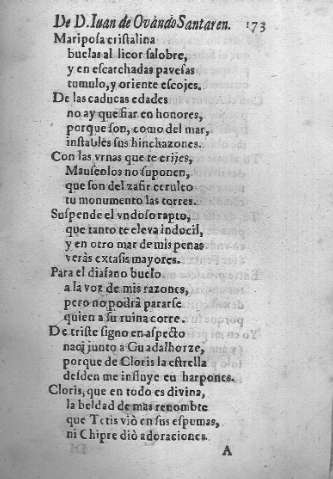 De D. Iuan de Ovàndo Santaren. 173
Mariposa cristalina
buelas al licor salobre,
y en escarchadas pavesas
tumulo, y oriente escojes.
De las caducas edades
no ay que fiar en honores,
porque son, como del mar,
instables sus hinchazones.
Con las vrnas que te erijes,
Mauseolos no suponen,
que son del zafir ceruleo
tu monumento las torres.
Suspende el vndoso rapto,
que tanto te eleva indocil,
y en otro mar de mis penas
veràs extasis mayores.
Para el diafano buelo
a la voz de mis razones,
pero no podrà pararse
quien a su ruina corre.
De triste signo en aspecto
nacì junto a Guadalhorze,
porque de Cloris la estrella
desden me influye en harpones.
Cloris, que en todo es divina,
la beldad de mas renombre
que Tetis viò en sus espumas,
ni Chipre diò adoraciones.
A